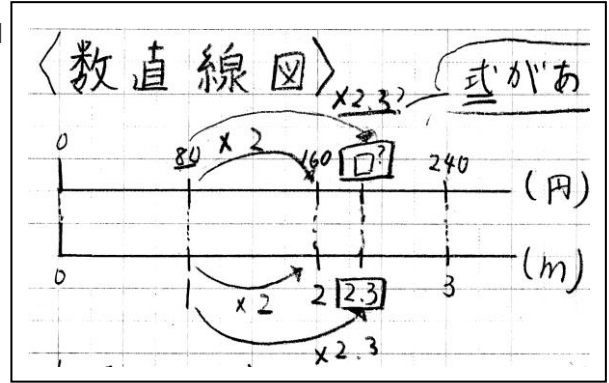 〈数直線図〉
×2.3? 式があ
0 80 ×2 160 □? 240 (円)
0 1 ×2 2 2.3 3 (m)
×2.3